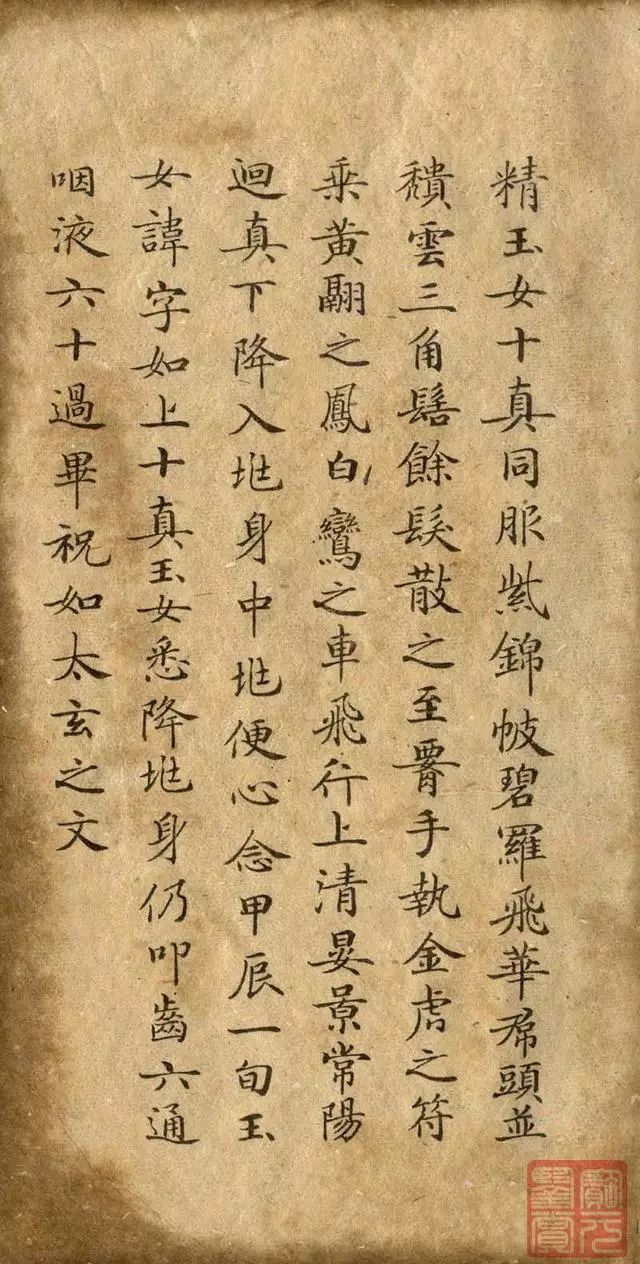 精玉女十真同服紫錦帔碧羅飛華帬頭並
穨雲三角髻餘髮散之至署手執金虎之符
乘黃翮之鳳白鸞之車飛行上清晏景常陽
迴真下降入兆身中兆便心念甲辰一旬玉
女諱字如上十真玉女悉降兆身仍叩齒六通
咽液六十過畢祝如太玄之文